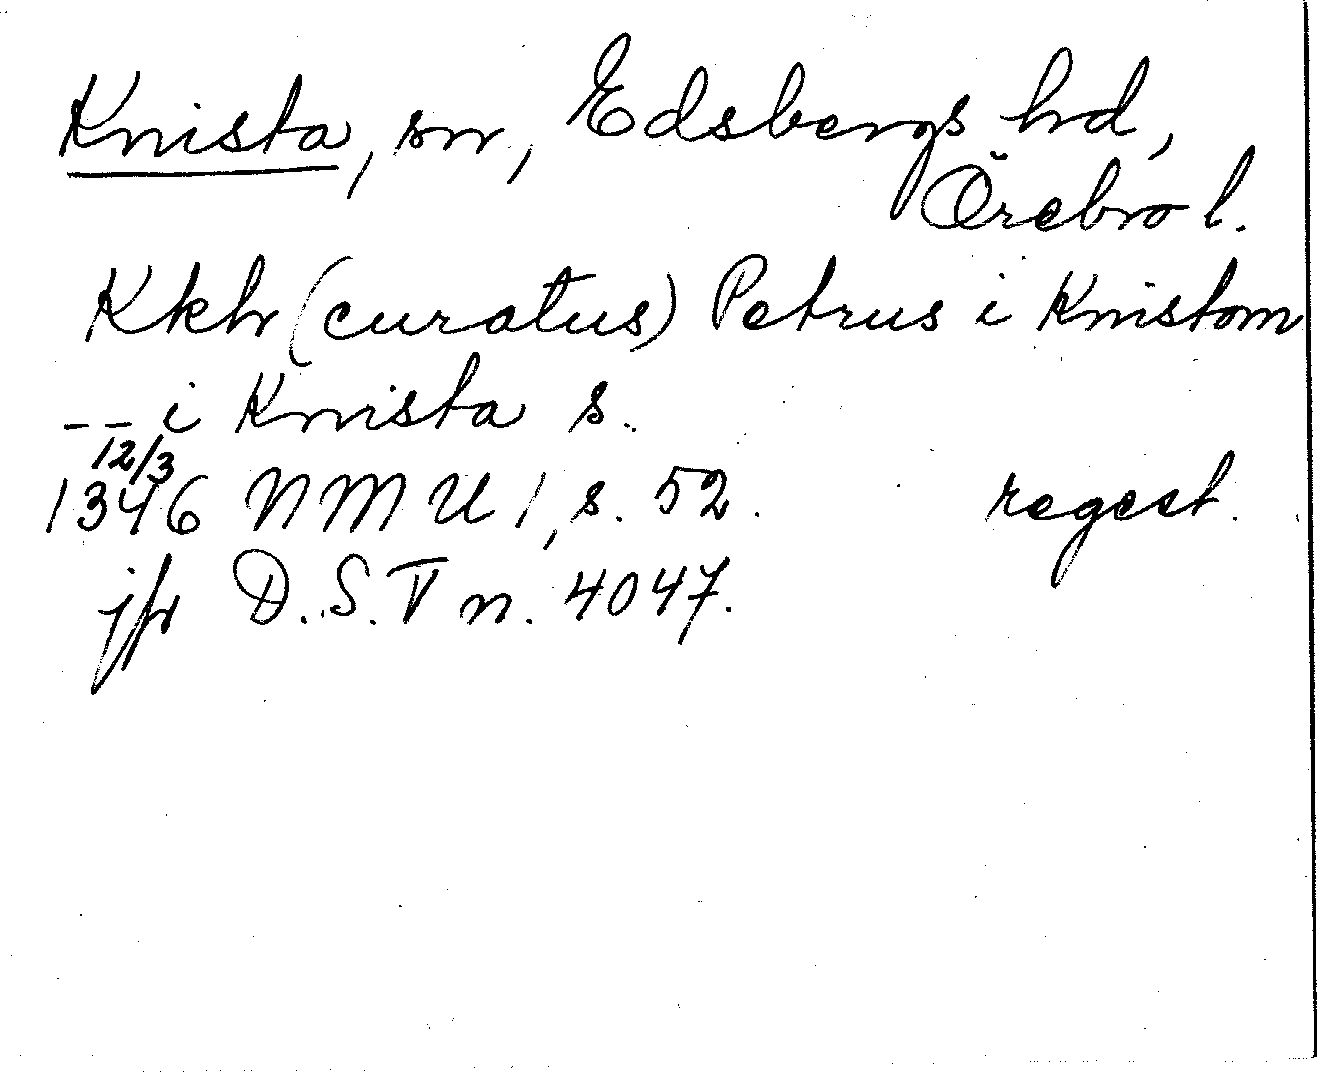 Knista, sn, Edsbergs hd,
Örebro l.
Kkh (curatus) Petrus i Knistom
-- i Knista s.
12/3
1346 NMU 1, s. 52. regest.
jfr D.S. V n. 4047.